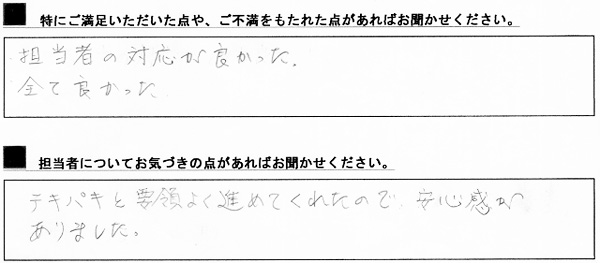 特にご満足いただいた点や、ご不満をもたれた点があればお聞かせください。
担当者の対応が良かった.
全て良かった
担当者についてお気づきの点があればお聞かせください。
テキパキと要領よく進めてくれたので、安心感が
ありました。